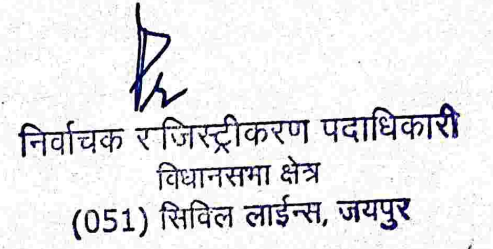 निर्वाचक रजिस्ट्रीकरण पदाधिकारी
विधानसभा क्षेत्र
(051) सिविल लाईन्स, जयपुर